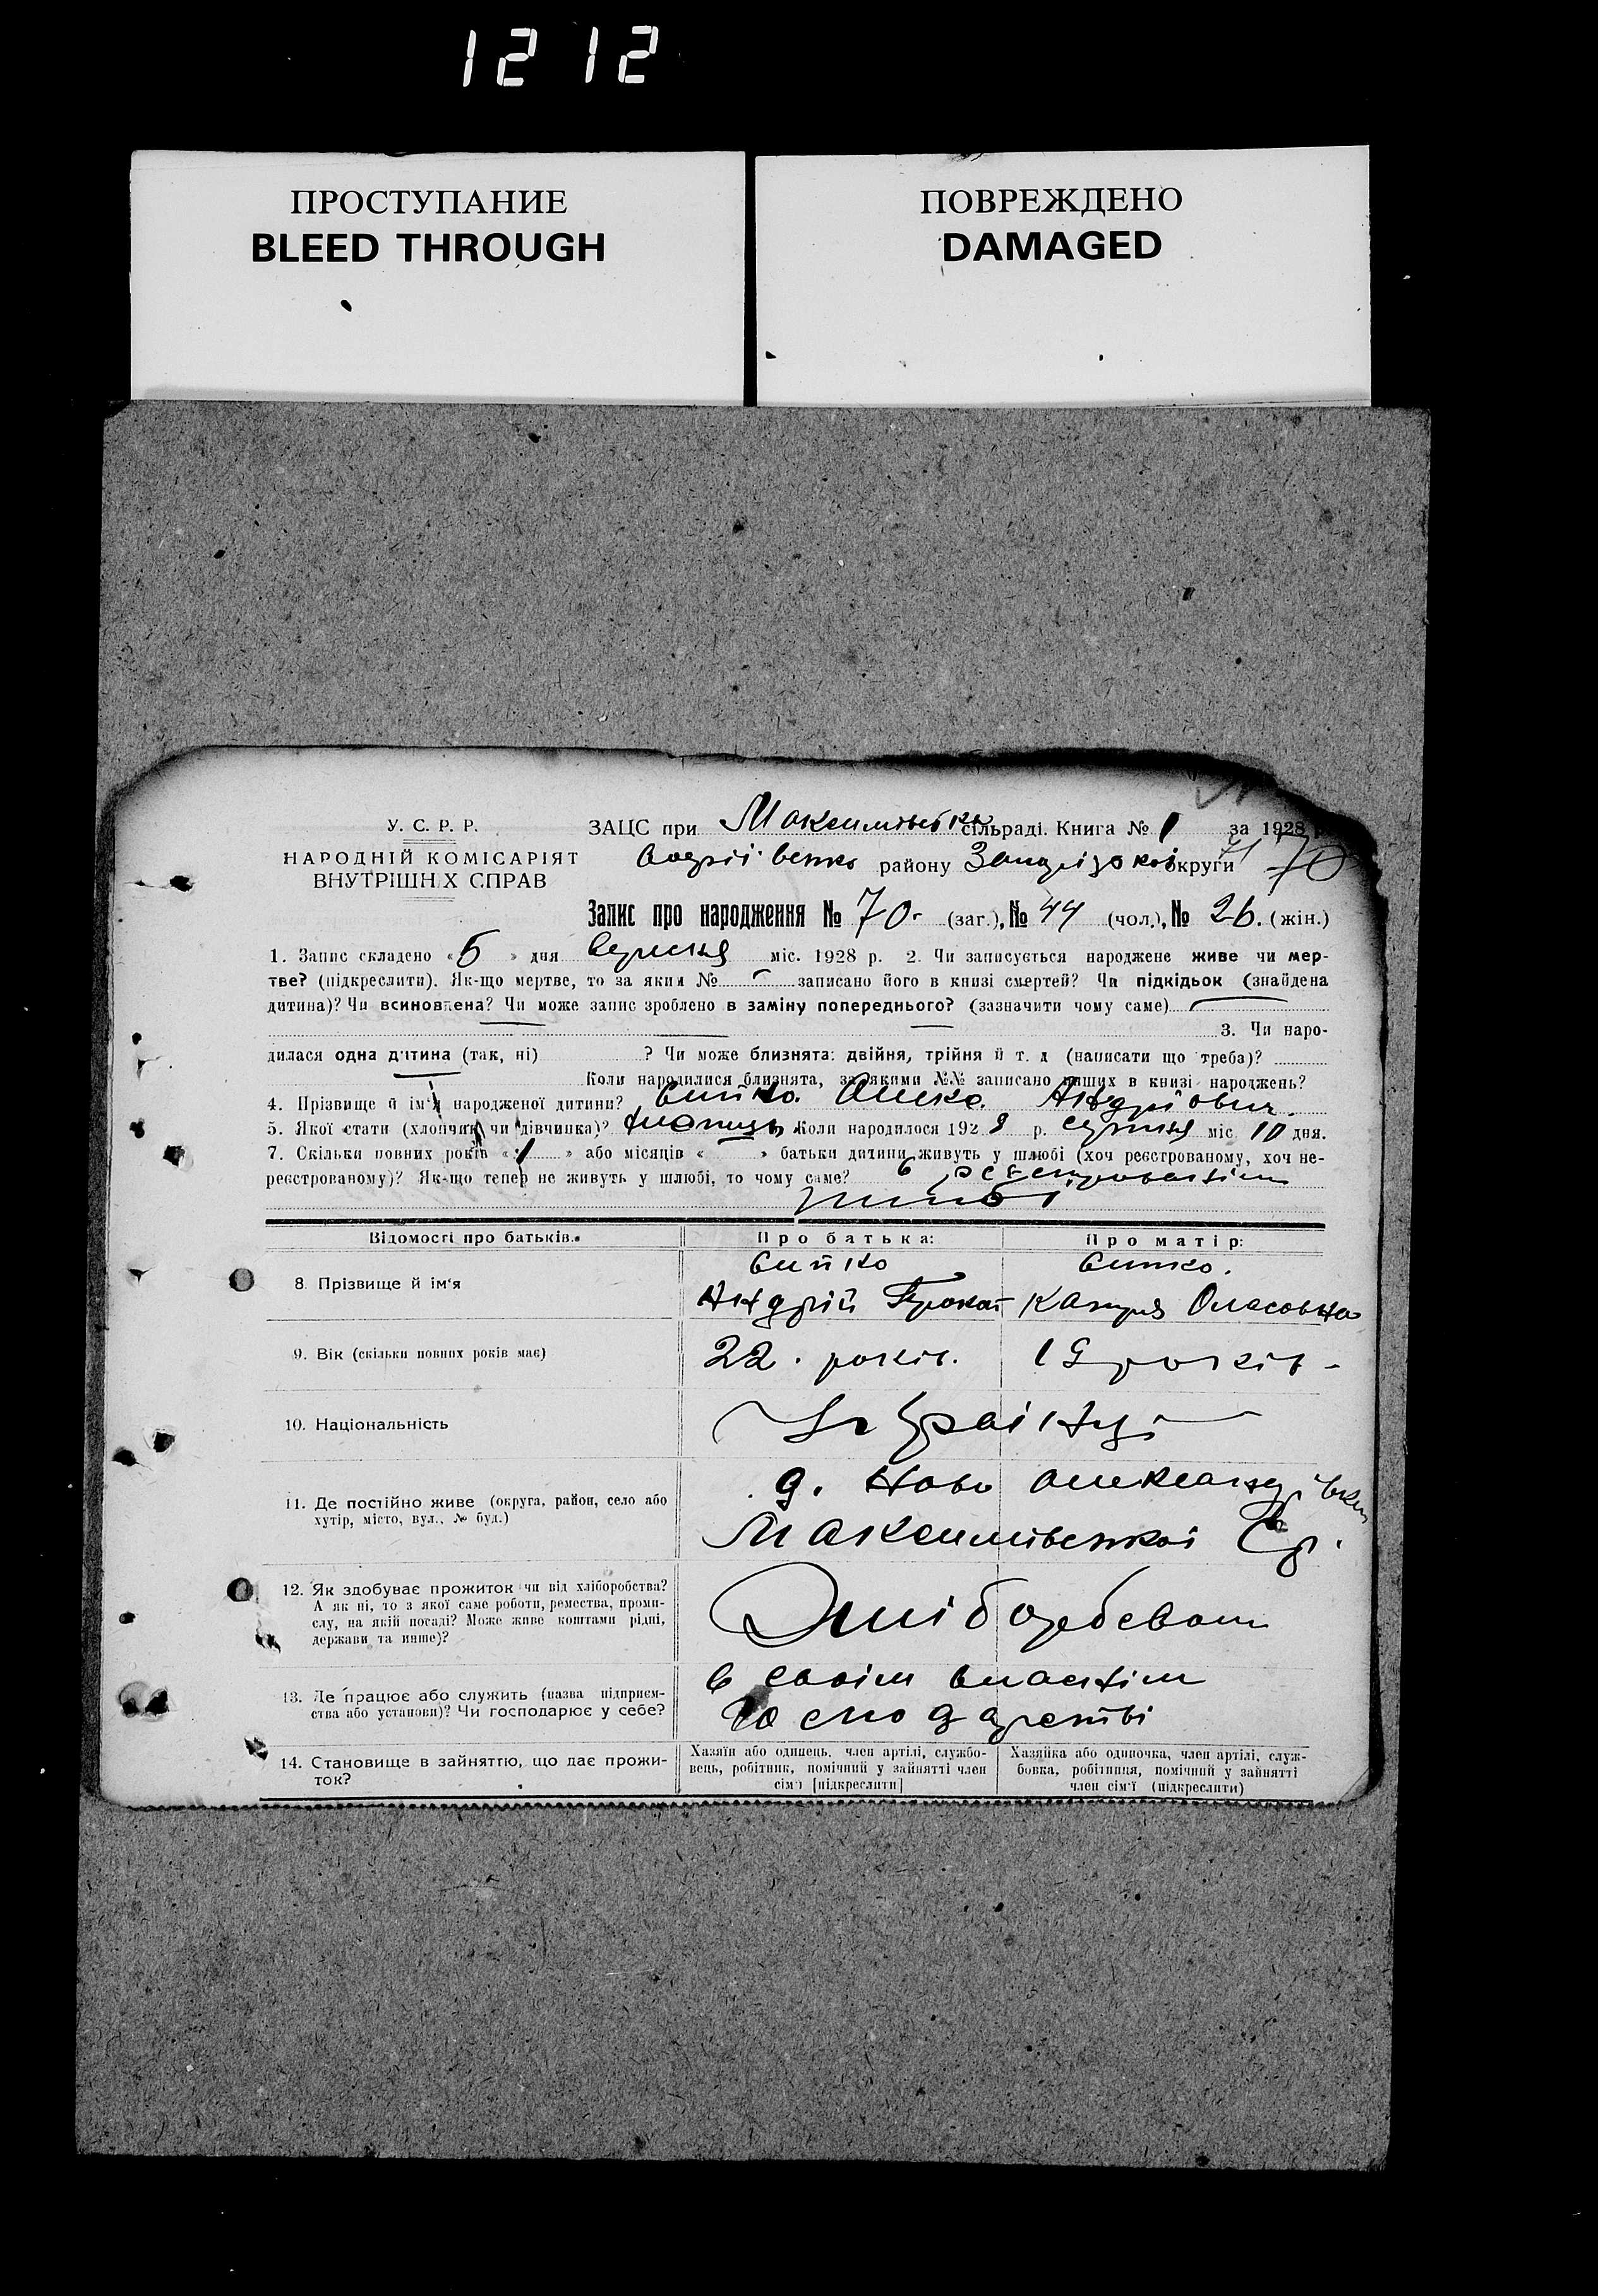 1212
ПРОСТУПАНИЕ
BLEED THROUGH
ПОВРЕЖДЕНО
DAMAGED
У. С. Р. Р.
НАРОДНІЙ КОМІСАРІЯТ
ВНУТРІШНІХ СПРАВ
ЗАЦС при сільраді. Книга № 1 за 1928
району округи 71 70
Запис про народження № 70 (заг.), № 44 (чол.), № 26. (жін.)
1. Запис складено «5» дня міс. 1928 р. 2. Чи записується народжене живе чи мер-
тве? (підкреслити). Як-що мертве, то за яким № записано його в книзі смертей? Чи підкідьок (знайдена
дитина)? Чи всиновлена? Чи може запис зроблено в заміну попереднього? (зазначити чому саме)
3. Чи наро-
дилася одна дитина (так, ні) ? Чи може близнята: двійня, трійня й т. д (написати що треба)?
Коли народилися близнята, за якими №№ записано инших в книзі народжень?
4. Прізвище й ім'я народженої дитини? Андрійович.
5. Якої стати (хлопчик чи дівчинка)? хлопець Коли народилося 1928 р. серпня міс 10 дня.
7. Скільки повних років «1» або місяців « » батьки дитини живуть у шлюбі (хоч реєстрованому, хоч не-
реєстрованому)? Як-що тепер не живуть у шлюбі, то чому саме? в
шлюбі
Відомості про батьків. Про батька: Про матір:
8. Прізвище й ім'я
Андрій
9. Вік (скільки повних років має) 22. років. 19 років
10. Національність Українці
11. Де постійно живе (округа, район, село або
хутір, місто, вул., № буд.)
Ново
12. Як здобуває прожиток чи від хліборобства?
А як ні, то з якої саме роботи, ремества, проми-
слу, на якій посаді? Може живе коштами рідні,
держави та инше)?
13. Де працює або служить (назва підприєм-
ства або установи)? Чи господарює у себе?
в своїм власнім
господарстві
14. Становище в зайняттю, що дає прожи-
ток?
Хазяїн або одинець, член артілі, службо-
вець, робітник, помічний у зайнятті член
сім'ї [підкреслити]
Хазяйка або одиночка, член артілі, служ-
бовка, робітниця, помічний у зайнятті
член сім'ї (підкреслити)